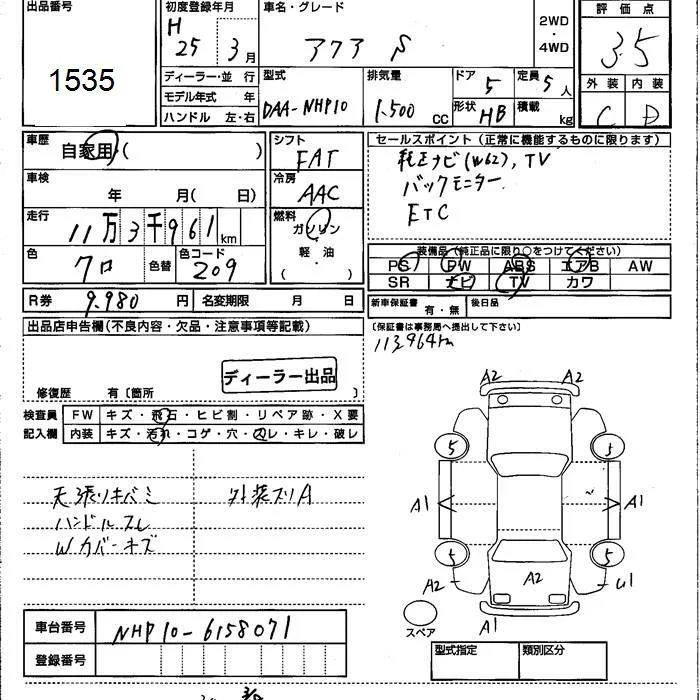 出品番号
1535
初度登録年月
H 25 3月
車名・グレード
アクア S
2WD・4WD
評価点
3.5
外装 内装
C D
ディーラー・並行
モデル年式 年
ハンドル 左・右
型式
DAA-NHP10
排気量
1.500 CC
ドア 5
形状 HB
定員 5人
積載 kg
車歴
自家用・( )
シフト
FAT
車検
年 月( 日)
冷房
AAC
走行
11万3千961km
燃料
ガソリン・軽油
( )
色
クロ
色替
色コード
209
セールスポイント (正常に機能するものに限ります)
純正ナビ(W62), TV
バックモニター
ETC
装備品 (純正品に限り○をつけてください)
PS PW ABS エアB AW
SR ナビ TV カワ
R券 9.980 円
名変期限 月 日
新車保証書 有・無
後日品
(保証書は事務局へ提出して下さい)
113,964km
出品店申告欄(不良内容・欠品・注意事項等記載)
ディーラー出品
修復歴 有〔箇所 〕
検査員記入欄
FW キズ・飛石・ヒビ割・リペア跡・X要
内装 キズ・汚れ・コゲ・穴・スレ・キレ・破レ
天張リキバミ 外装スリA
ハンドルスレ
Wカバーキズ
A2 A2
5 5
A1 A1
5 5
A2 A2 U1
A1
スペア
車台番号 NHP10-6158071
登録番号
型式指定 類別区分